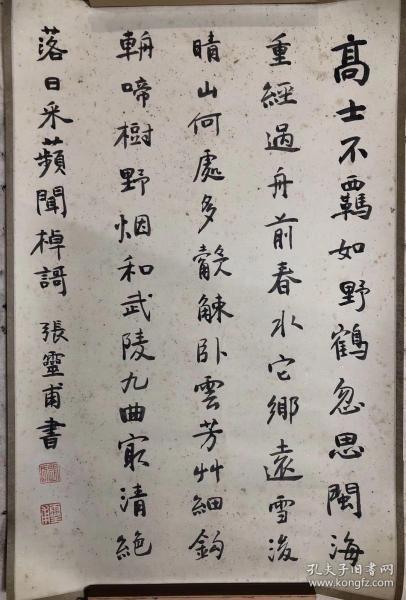 高士不羈如野鶴忽思閩海
重經過舟前春水它鄉遠雪後
晴山何處多觳觫卧雲芳艸細鈎
輈啼樹野烟和武陵九曲寂清絕
落日采蘋聞棹謌 張靈甫書
孔夫子旧书网
www.kongfz.com